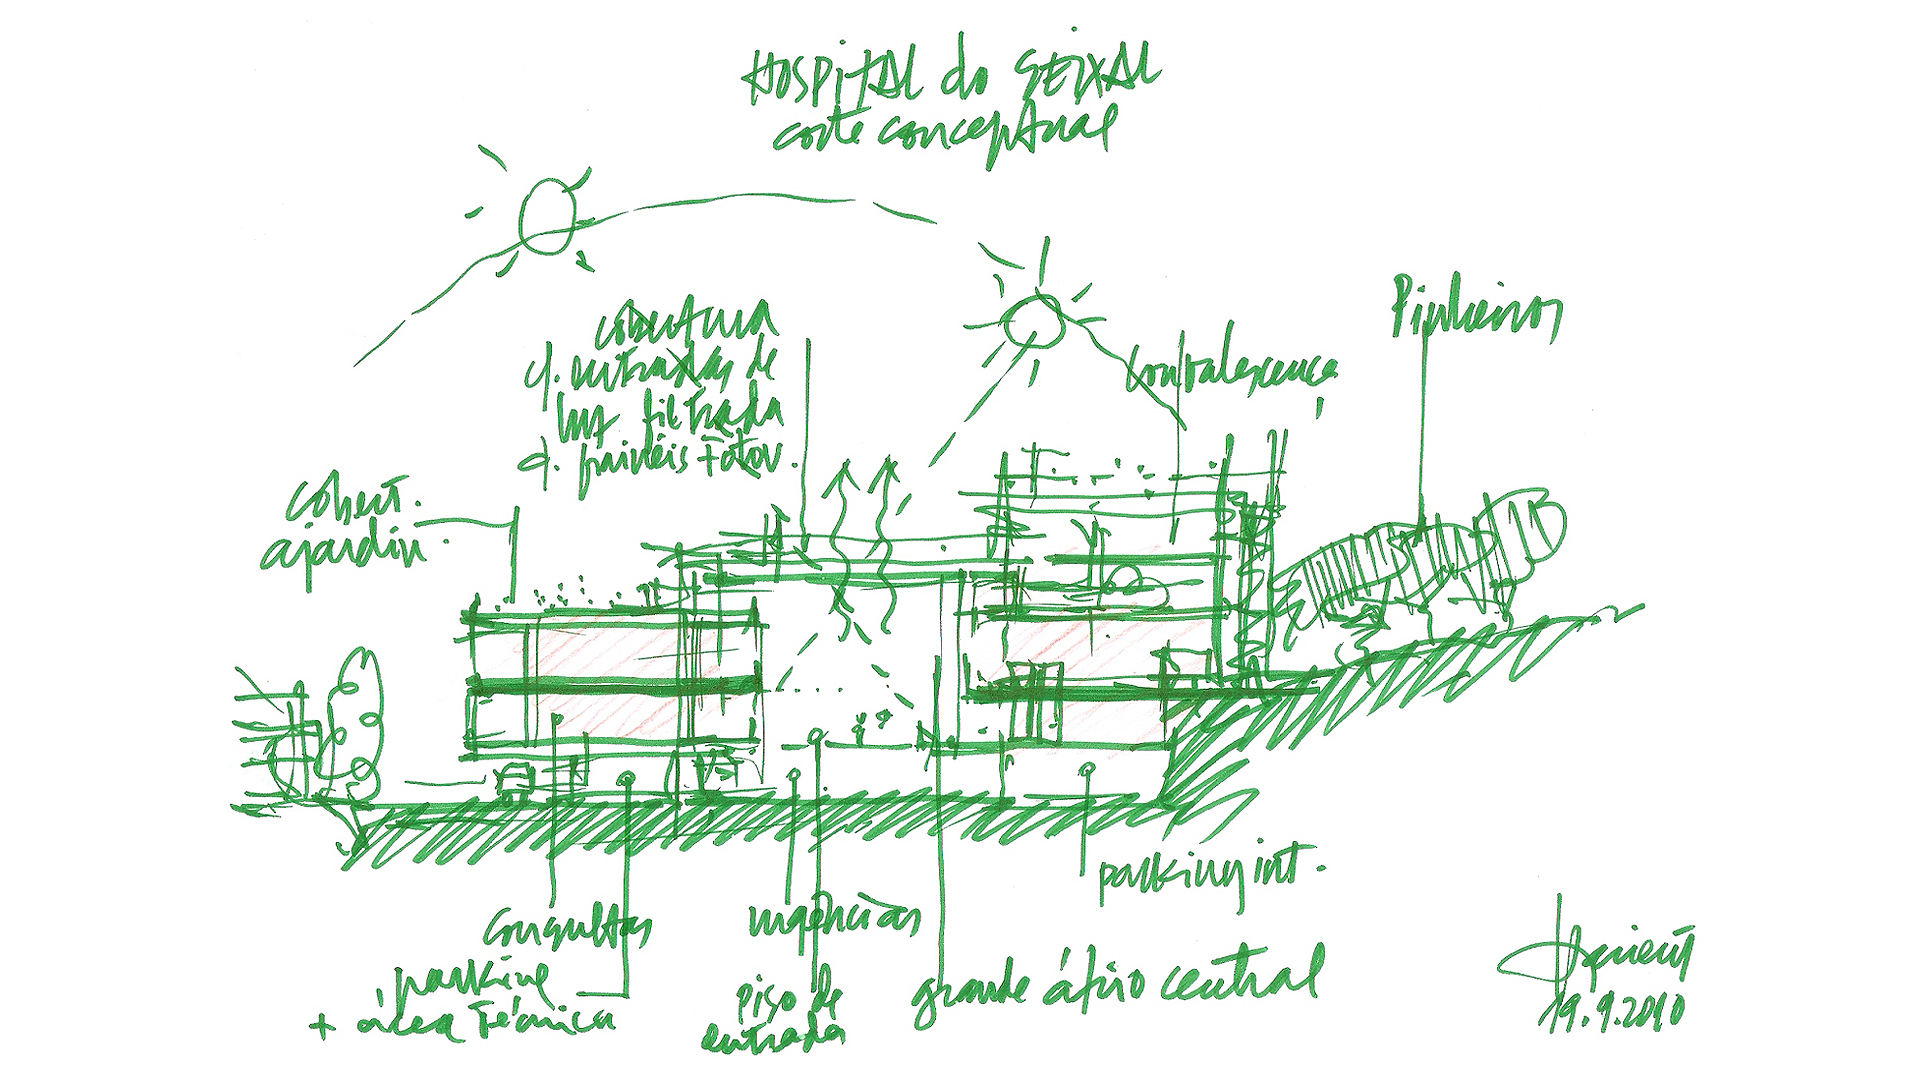 HOSPITAL do SEIXAL
corte conceptual
Pinheiros
cobertura
c/. entradas de
luz filtrada
e. painéis Fotov.
convalescença
cobert.
ajardin.
parking int.
consultas
urgências
parking
+ área Técnica
piso de
entrada
grande átrio central
19.9.2010